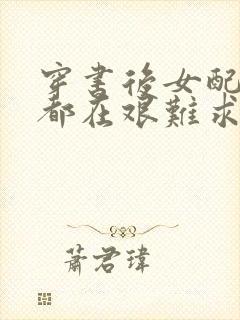 穿書後女配
都在艱難求
蕭君瑋